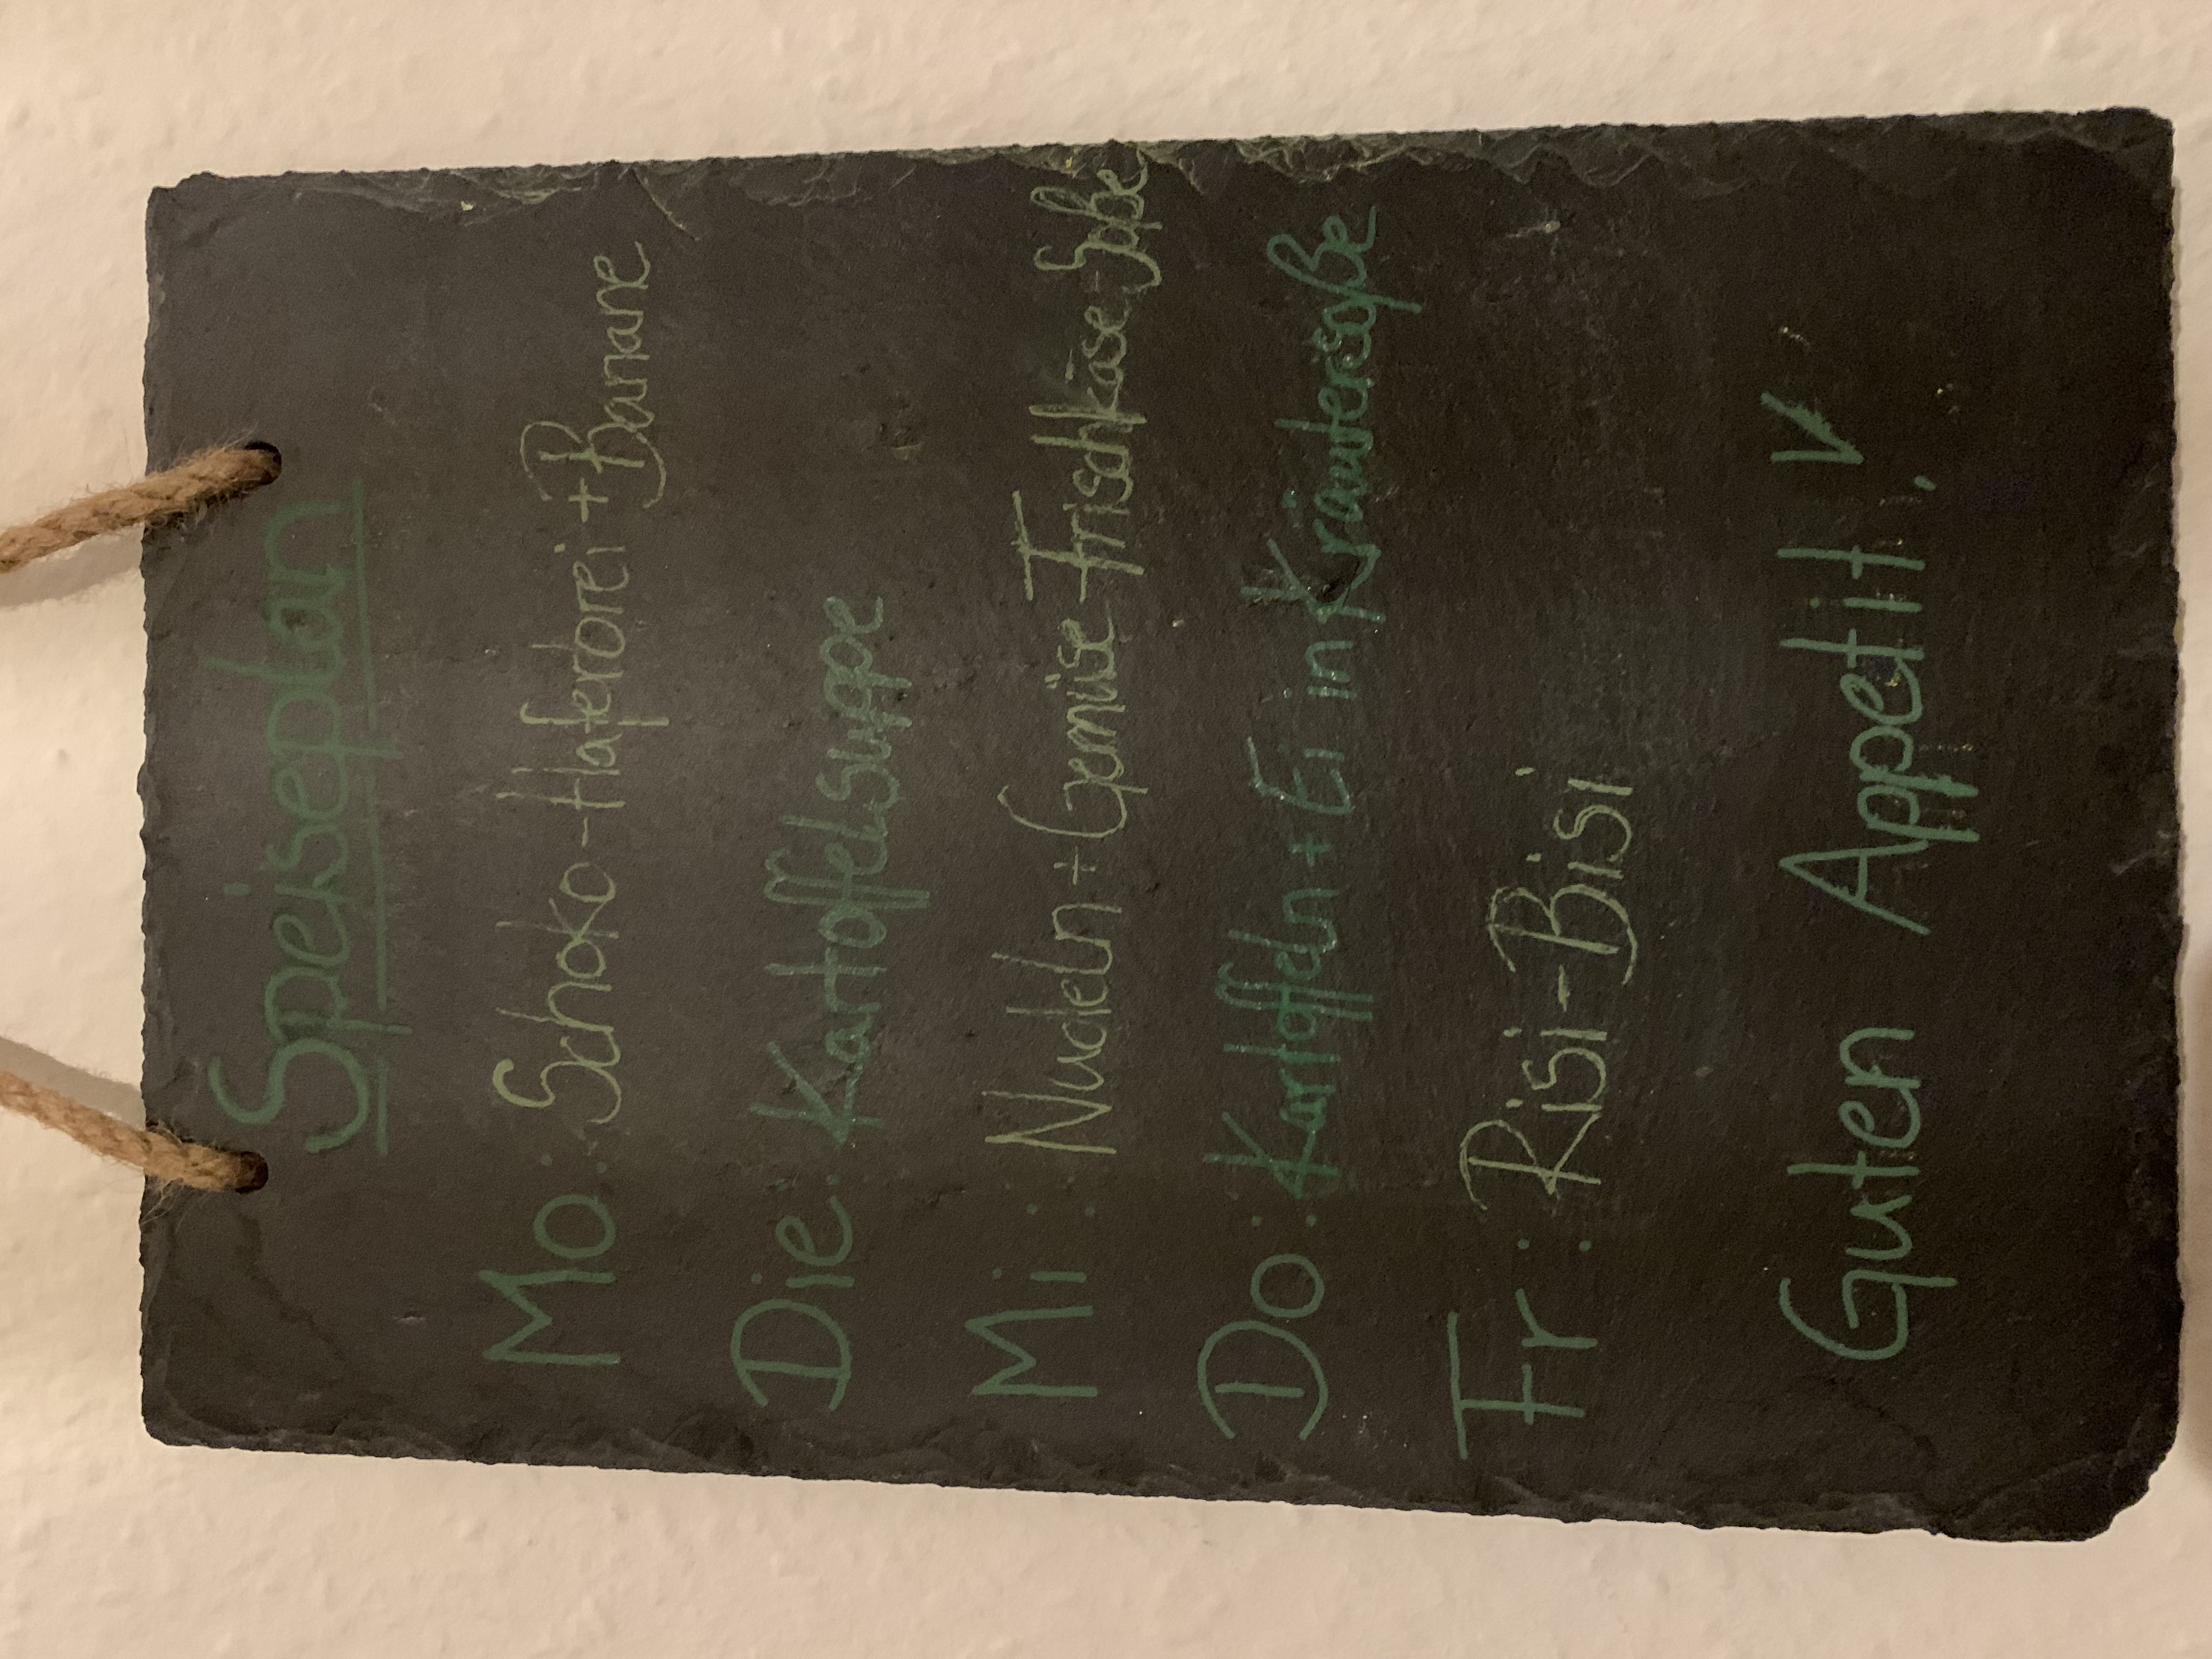 Speiseplan
Mo: Schoko-Haferbrei + Banane
Die: Kartoffelsuppe
Mi: Nudeln + Gemüse-Frischkäse-Soße
Do: Kartoffeln + Ei in Kräutersoße
Fr: Risi-Bisi
Guten Appetit!